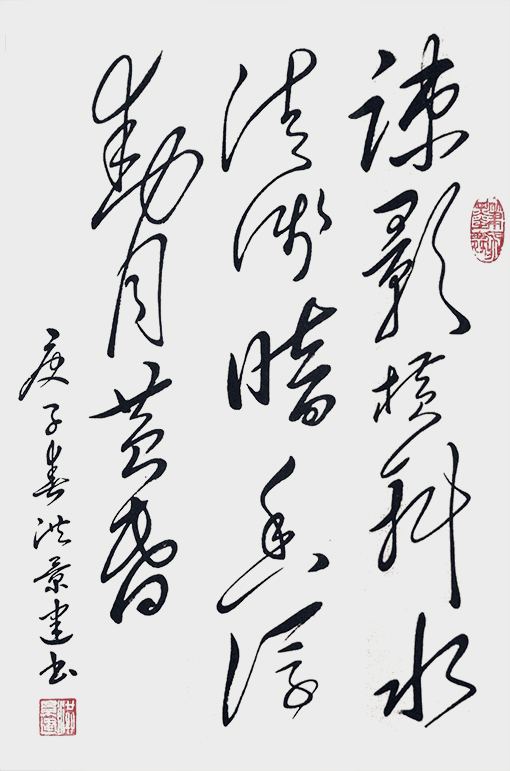 疎影横斜水
清浅暗香浮
動月黄昏
庚子春洪景建书